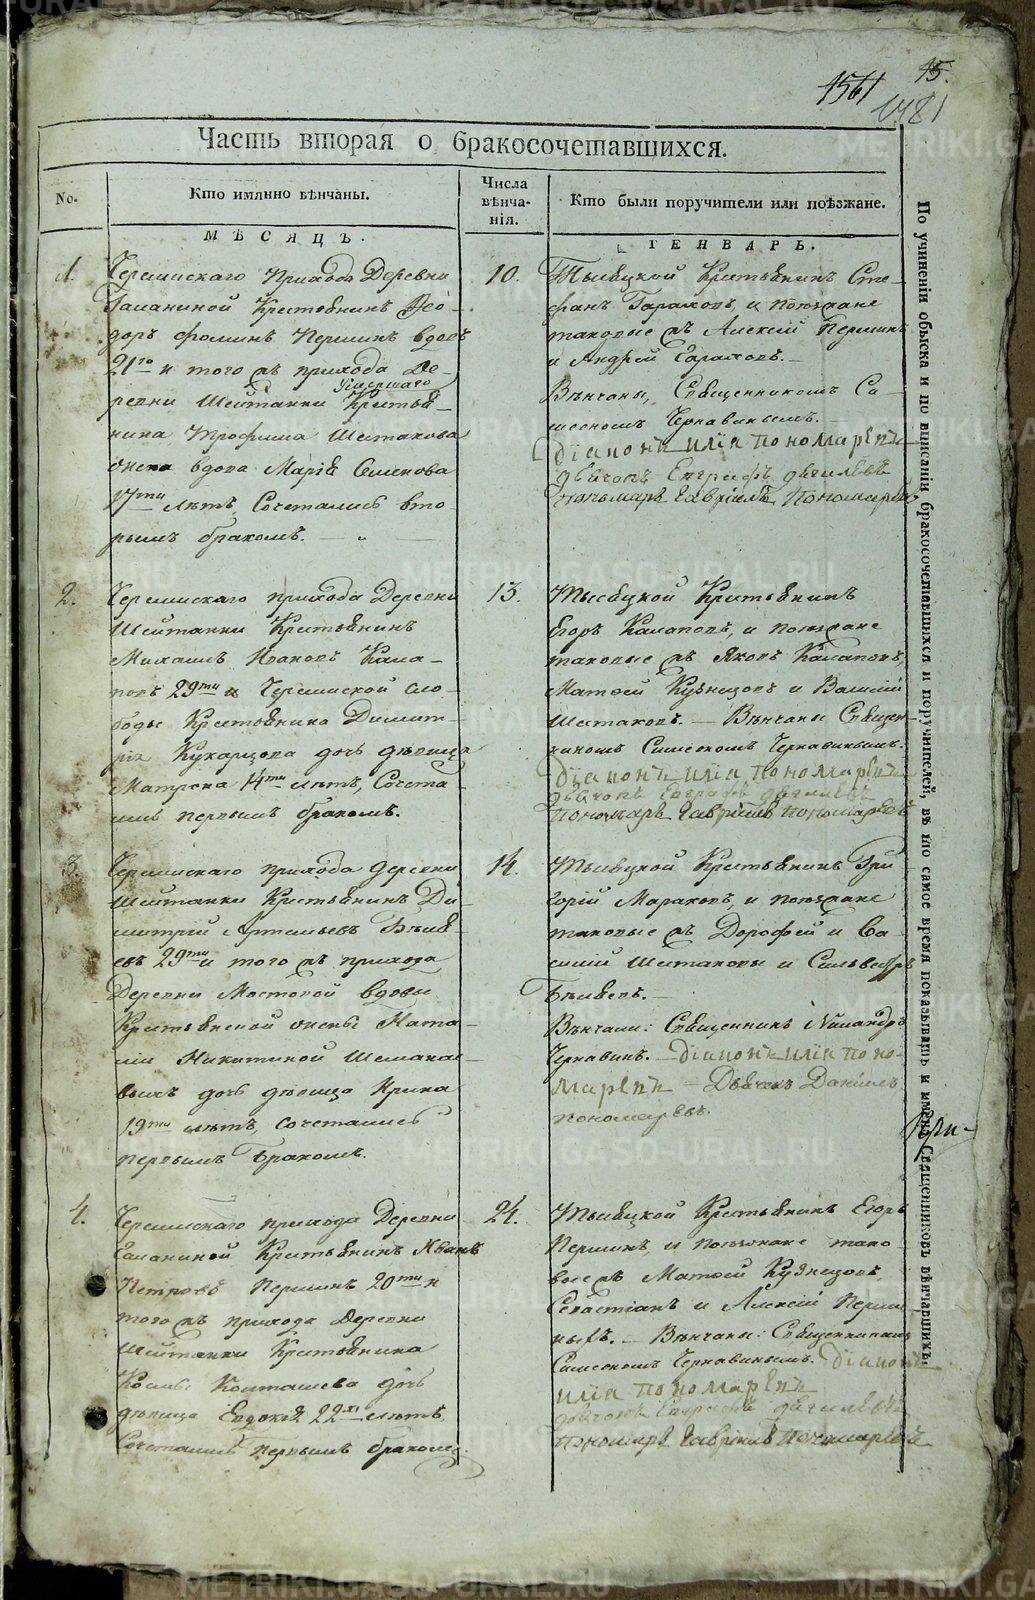 15.
1561
1481
Часть вторая о бракосочетавшихся.
No.
Кто имянно вѣнчаны.
Числа вѣнча-
нія.
Кто были поручители или поѣзжане.
МѢСЯЦЪ.
ГЕНВАРЬ.
1.
Черемискаго Прихода Деревни
Галаниной Крестьянинъ Ѳео-
доръ Ѳоминъ Першинъ вдовъ
21го и того жъ прихода Де-
умершаго
ревни Шейтанки Крестья-
нина Трофима Шестакова
жена вдова Марія Семенова
17ти лѣтъ, Сочетались вто-
рымъ бракомъ.
10.
Крестьянинъ Сте-
фанъ и поѣзжане
таковые жъ Алексій Першинъ
и Андрей
Вѣнчаны, Священникомъ Си-
меономъ Чернавинымъ.
діаконъ илія пономаревъ
дьячокъ Евграфъ
пономарь Гавріилъ Пономаревъ
2.
Черемискаго прихода Деревни
Шейтанки Крестьянинъ
Михаилъ Ивановъ Кала-
повъ 29ти и Черемиской сло-
боды Крестьянина Димит-
рія Кухарцова дочь дѣвица
Матрена 14ти лѣтъ, Сочета-
лись первымъ бракомъ.
13.
Крестьянинъ
Егоръ Калаповъ, и поѣзжане
таковые жъ Яковъ Калаповъ,
Матѳей Кузнецовъ и Василій
Шестаковъ. — Вѣнчаны Священ-
никомъ Симеономъ Чернавинымъ.
діаконъ илія пономаревъ
дьячокъ Евграфъ
пономарь Гавріилъ пономаревъ
3.
Черемискаго прихода деревни
Шейтанки Крестьянинъ Ди-
митрій Артемьевъ Бѣля-
евъ 29ти и того жъ прихода
Деревни Мостовой вдовы
Крестьянской жены Ната-
ліи Никитиной
дочь дѣвица Ирина
19ти лѣтъ, сочетались
первымъ бракомъ.
14.
Крестьянинъ Гри-
горій и поѣзжане
таковые жъ Дорофей и Ва-
силій Шестаковы и Сильвестръ
Бѣляевъ.
Вѣнчали: Священникъ Никандръ
Чернавинъ. — діаконъ илія поно-
маревъ — Дьячекъ Даніилъ
пономаревъ.
При-
4.
Черемискаго прихода Деревни
Галаниной Крестьянинъ Иванъ
Петровъ Першинъ 20ти и
того жъ прихода Деревни
Шейтанки Крестьянина
Козмы дочь
дѣвица Евдокія 22хъ лѣтъ,
Сочетались первымъ бракомъ.
24.
Крестьянинъ Егоръ
Першинъ, и поѣзжане тако-
вые жъ Матѳей Кузнецовъ
Севастіанъ и Алексій Перши-
ныхъ. — Вѣнчаны: Священникомъ
Симеономъ Чернавинымъ. діаконъ
илія пономаревъ
дьячокъ Евграфъ
пономарь Гавріилъ пономаревъ
По учиненіи обыска и по вписаніи бракосочетавшихся и поручителей, въ то самое время показывать и имена Священниковъ вѣнчавшихъ.
METRIKI.GASO-URAL.RU